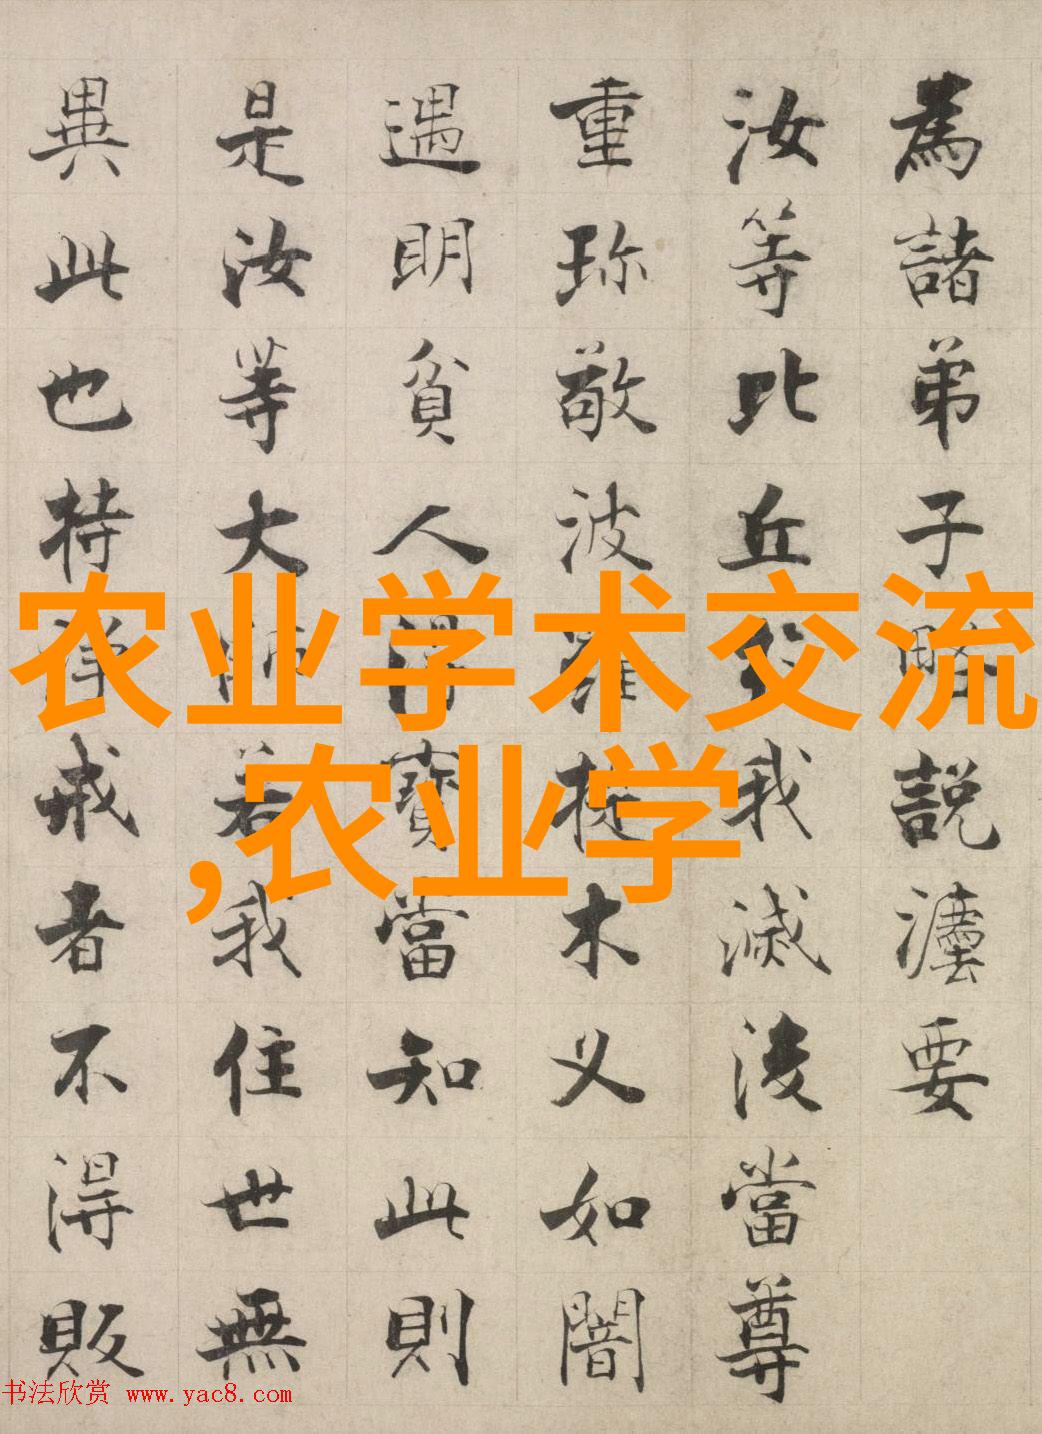 為諸弟子略說灋要
汝等比丘於我滅後當尊
重珎敬波羅提木叉如闇
遇明貧人得寶當知此則
是汝等大師若我住世無
異此也持淨戒者不得販
农业学术交流
,农业学
书法欣赏 www.yac8.com